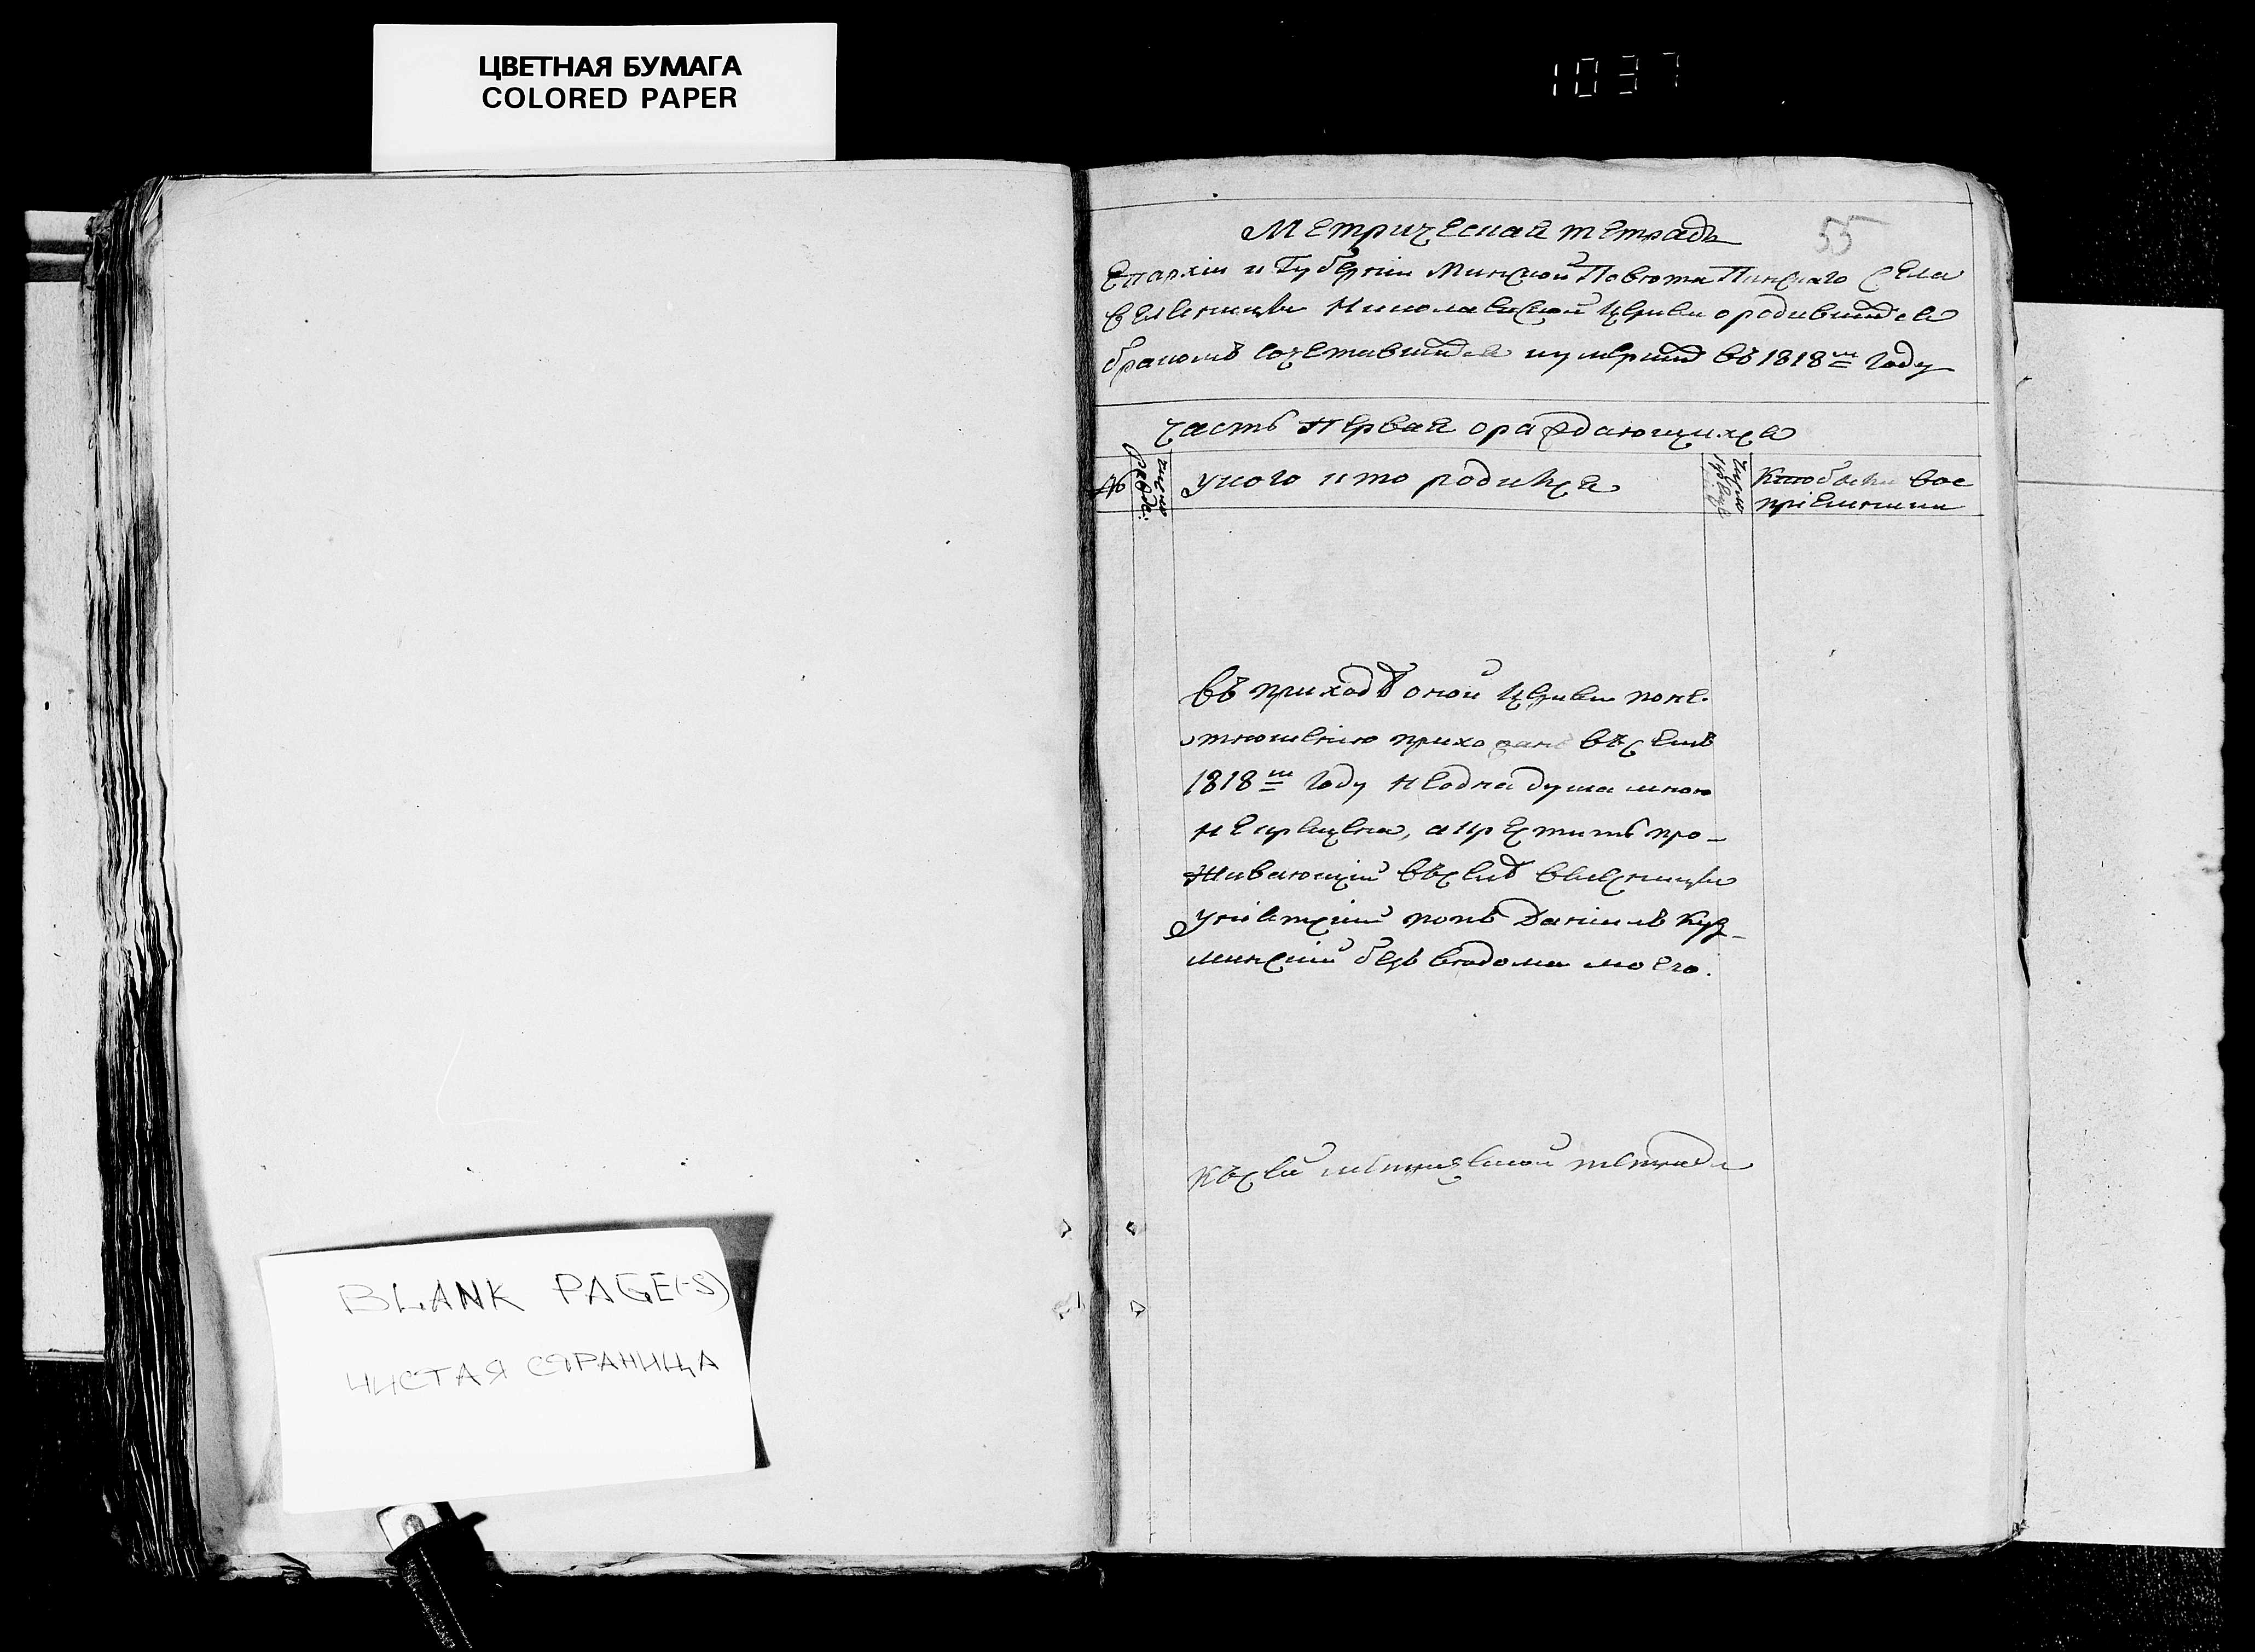 ЦВЕТНАЯ БУМАГА
COLORED PAPER
1037
55
Метрическая тетрадь
Епархіи и Губерніи Минской Повѣта Пинскаго Села
Николаевской Церкви о родившихся
бракомъ сочетавшихся и умершихъ въ 1818м Году
Часть первая о раждающихся
№
число
у кого кто родился
число
Кто были вос
пріемники
въ приходѣ оной Церкви по не
прихожанъ въ семъ
1818м Году не одна душа мною
не крещена, а креститъ про-
живающій въ селѣ
Уніатскій попъ Даніилъ Куз-
минскій безъ вѣдома моего.
Къ сей метрической тетради
BLANK PAGE(-S)
ЧИСТАЯ СТРАНИЦА